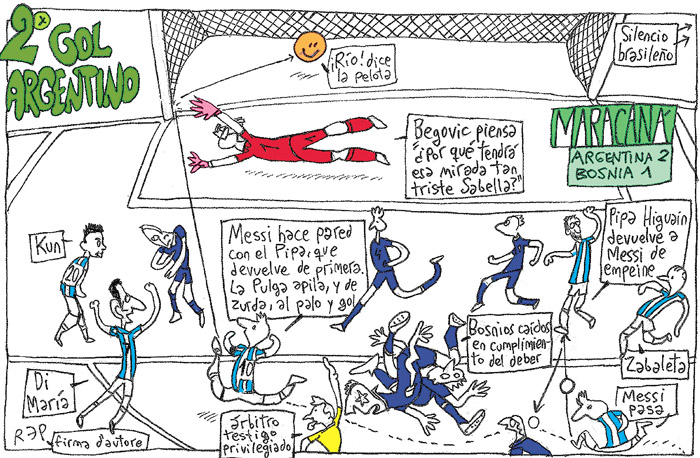 2º GOL
ARGENTINO
¡Río! dice
la pelota
Silencio
brasileño
Begovic piensa
"¿Por qué tendrá
esa mirada tan
triste Sabella?"
MARACANÁ
ARGENTINA 2
BOSNIA 1
Kun
Messi hace pared
con el Pipa, que
devuelve de primera.
La Pulga apila, y de
zurda, al palo y gol
Pipa Higuaín
devuelve a
Messi de
empeine
20
10
Bosnios caídos
en cumplimien
to del deber
Zabaleta
Di
María
Messi
pasa
árbitro
testigo
privilegiado
REP
firma d'autore